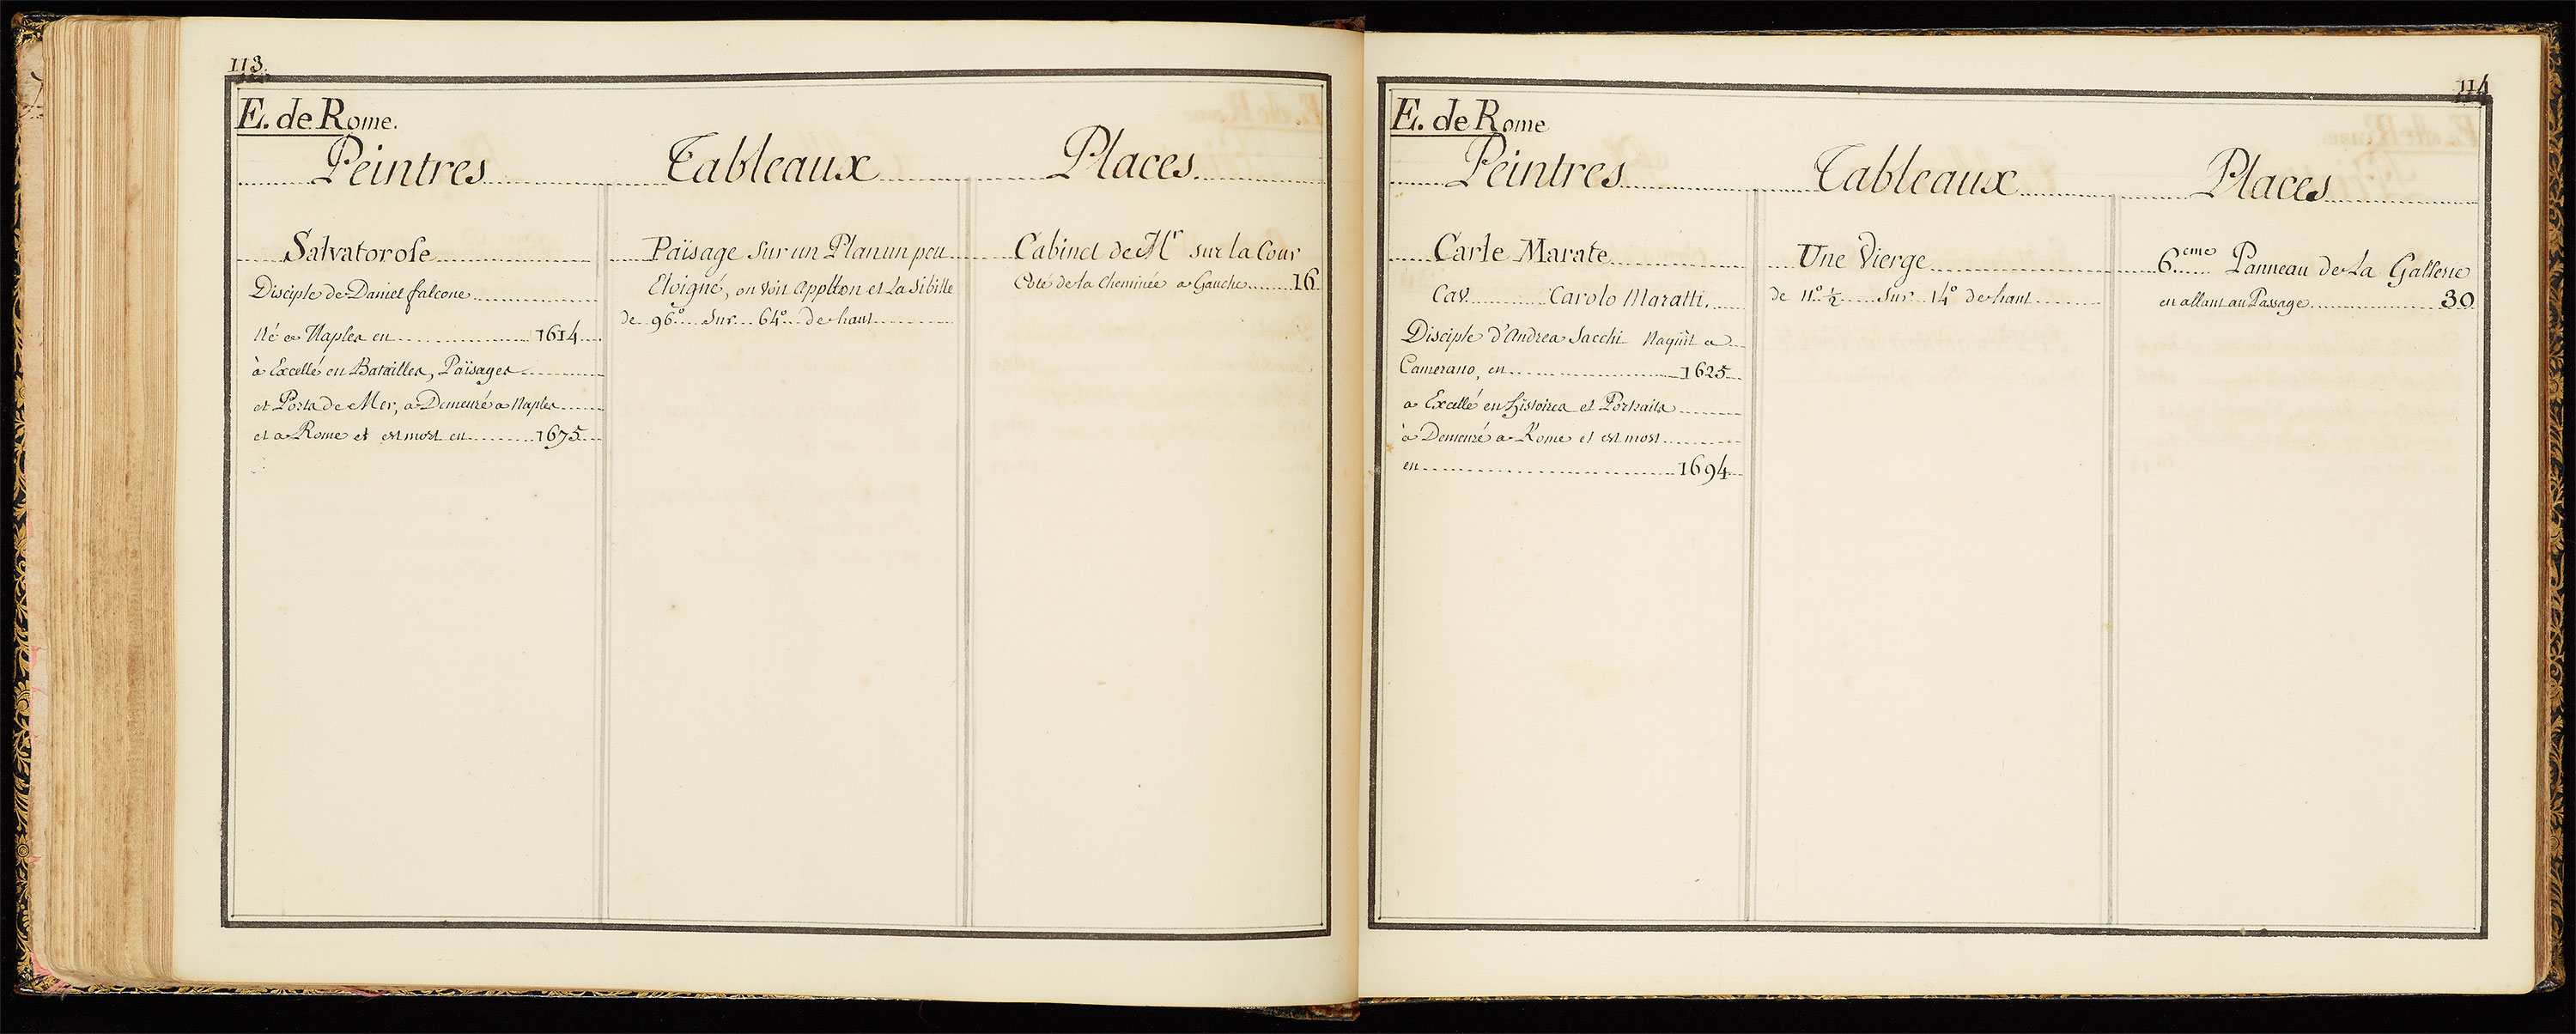 113.
E. de Rome.
Peintres Tableaux Places.
Salvatorose
Disciple de Daniel falcone
Né a Naples en 1614
à Excellé en Batailles, Païsages
et Ports de Mer, a Demeuré a Naples
et a Rome et est mort en 1675
Païsage Sur un Plan un peu
Eloigné, on voit Appllon et La Sibille
de 96° Sur 64° de haut
Cabinet de Mr sur la Cour
Coté de la Cheminée a Gauche 16
114
E. de Rome
Peintres Tableaux Places
Carle Marate
Cav. Carolo Maratti.
Disciple d'Andrea Sacchi Naquit a
Camerano, en 1625
a Excellé en histoires et Portraits
à Demeuré a Rome et est mort
en 1694
Une Vierge
de 11° ½ Sur 14° de haut
6eme Panneau de La Gallerie
en allant au Passage 30